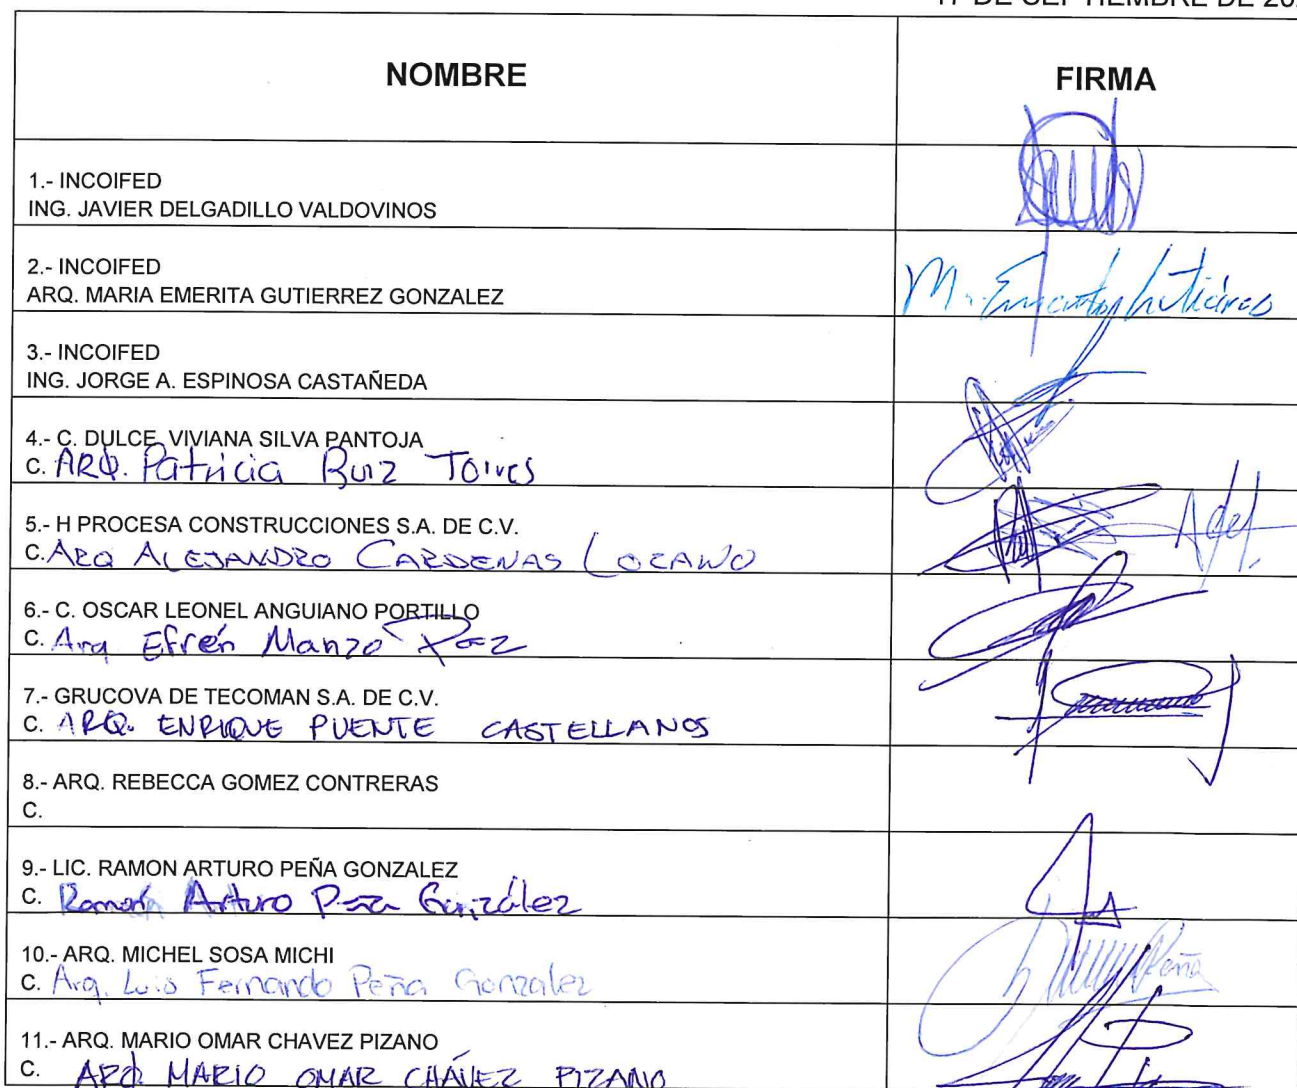 17 DE SEPTIEMBRE DE
NOMBRE FIRMA
1.- INCOIFED
ING. JAVIER DELGADILLO VALDOVINOS
2.- INCOIFED
ARQ. MARIA EMERITA GUTIERREZ GONZALEZ
3.- INCOIFED
ING. JORGE A. ESPINOSA CASTAÑEDA
4.- C. DULCE VIVIANA SILVA PANTOJA
C. ARQ. Patricia Ruiz Torres
5.- H PROCESA CONSTRUCCIONES S.A. DE C.V.
C. ARQ ALEJANDRO CARDENAS LOZANO
6.- C. OSCAR LEONEL ANGUIANO PORTILLO
C. Arq Efrén Manzo
7.- GRUCOVA DE TECOMAN S.A. DE C.V.
C. ARQ. ENRIQUE PUENTE CASTELLANOS
8.- ARQ. REBECCA GOMEZ CONTRERAS
C.
9.- LIC. RAMON ARTURO PEÑA GONZALEZ
C. Ramón Arturo Peña González
10.- ARQ. MICHEL SOSA MICHI
C. Arq. Luis Fernando Peña Gonzalez
Peña
11.- ARQ. MARIO OMAR CHAVEZ PIZANO
C. ARQ. MARIO OMAR CHÁVEZ PIZANO